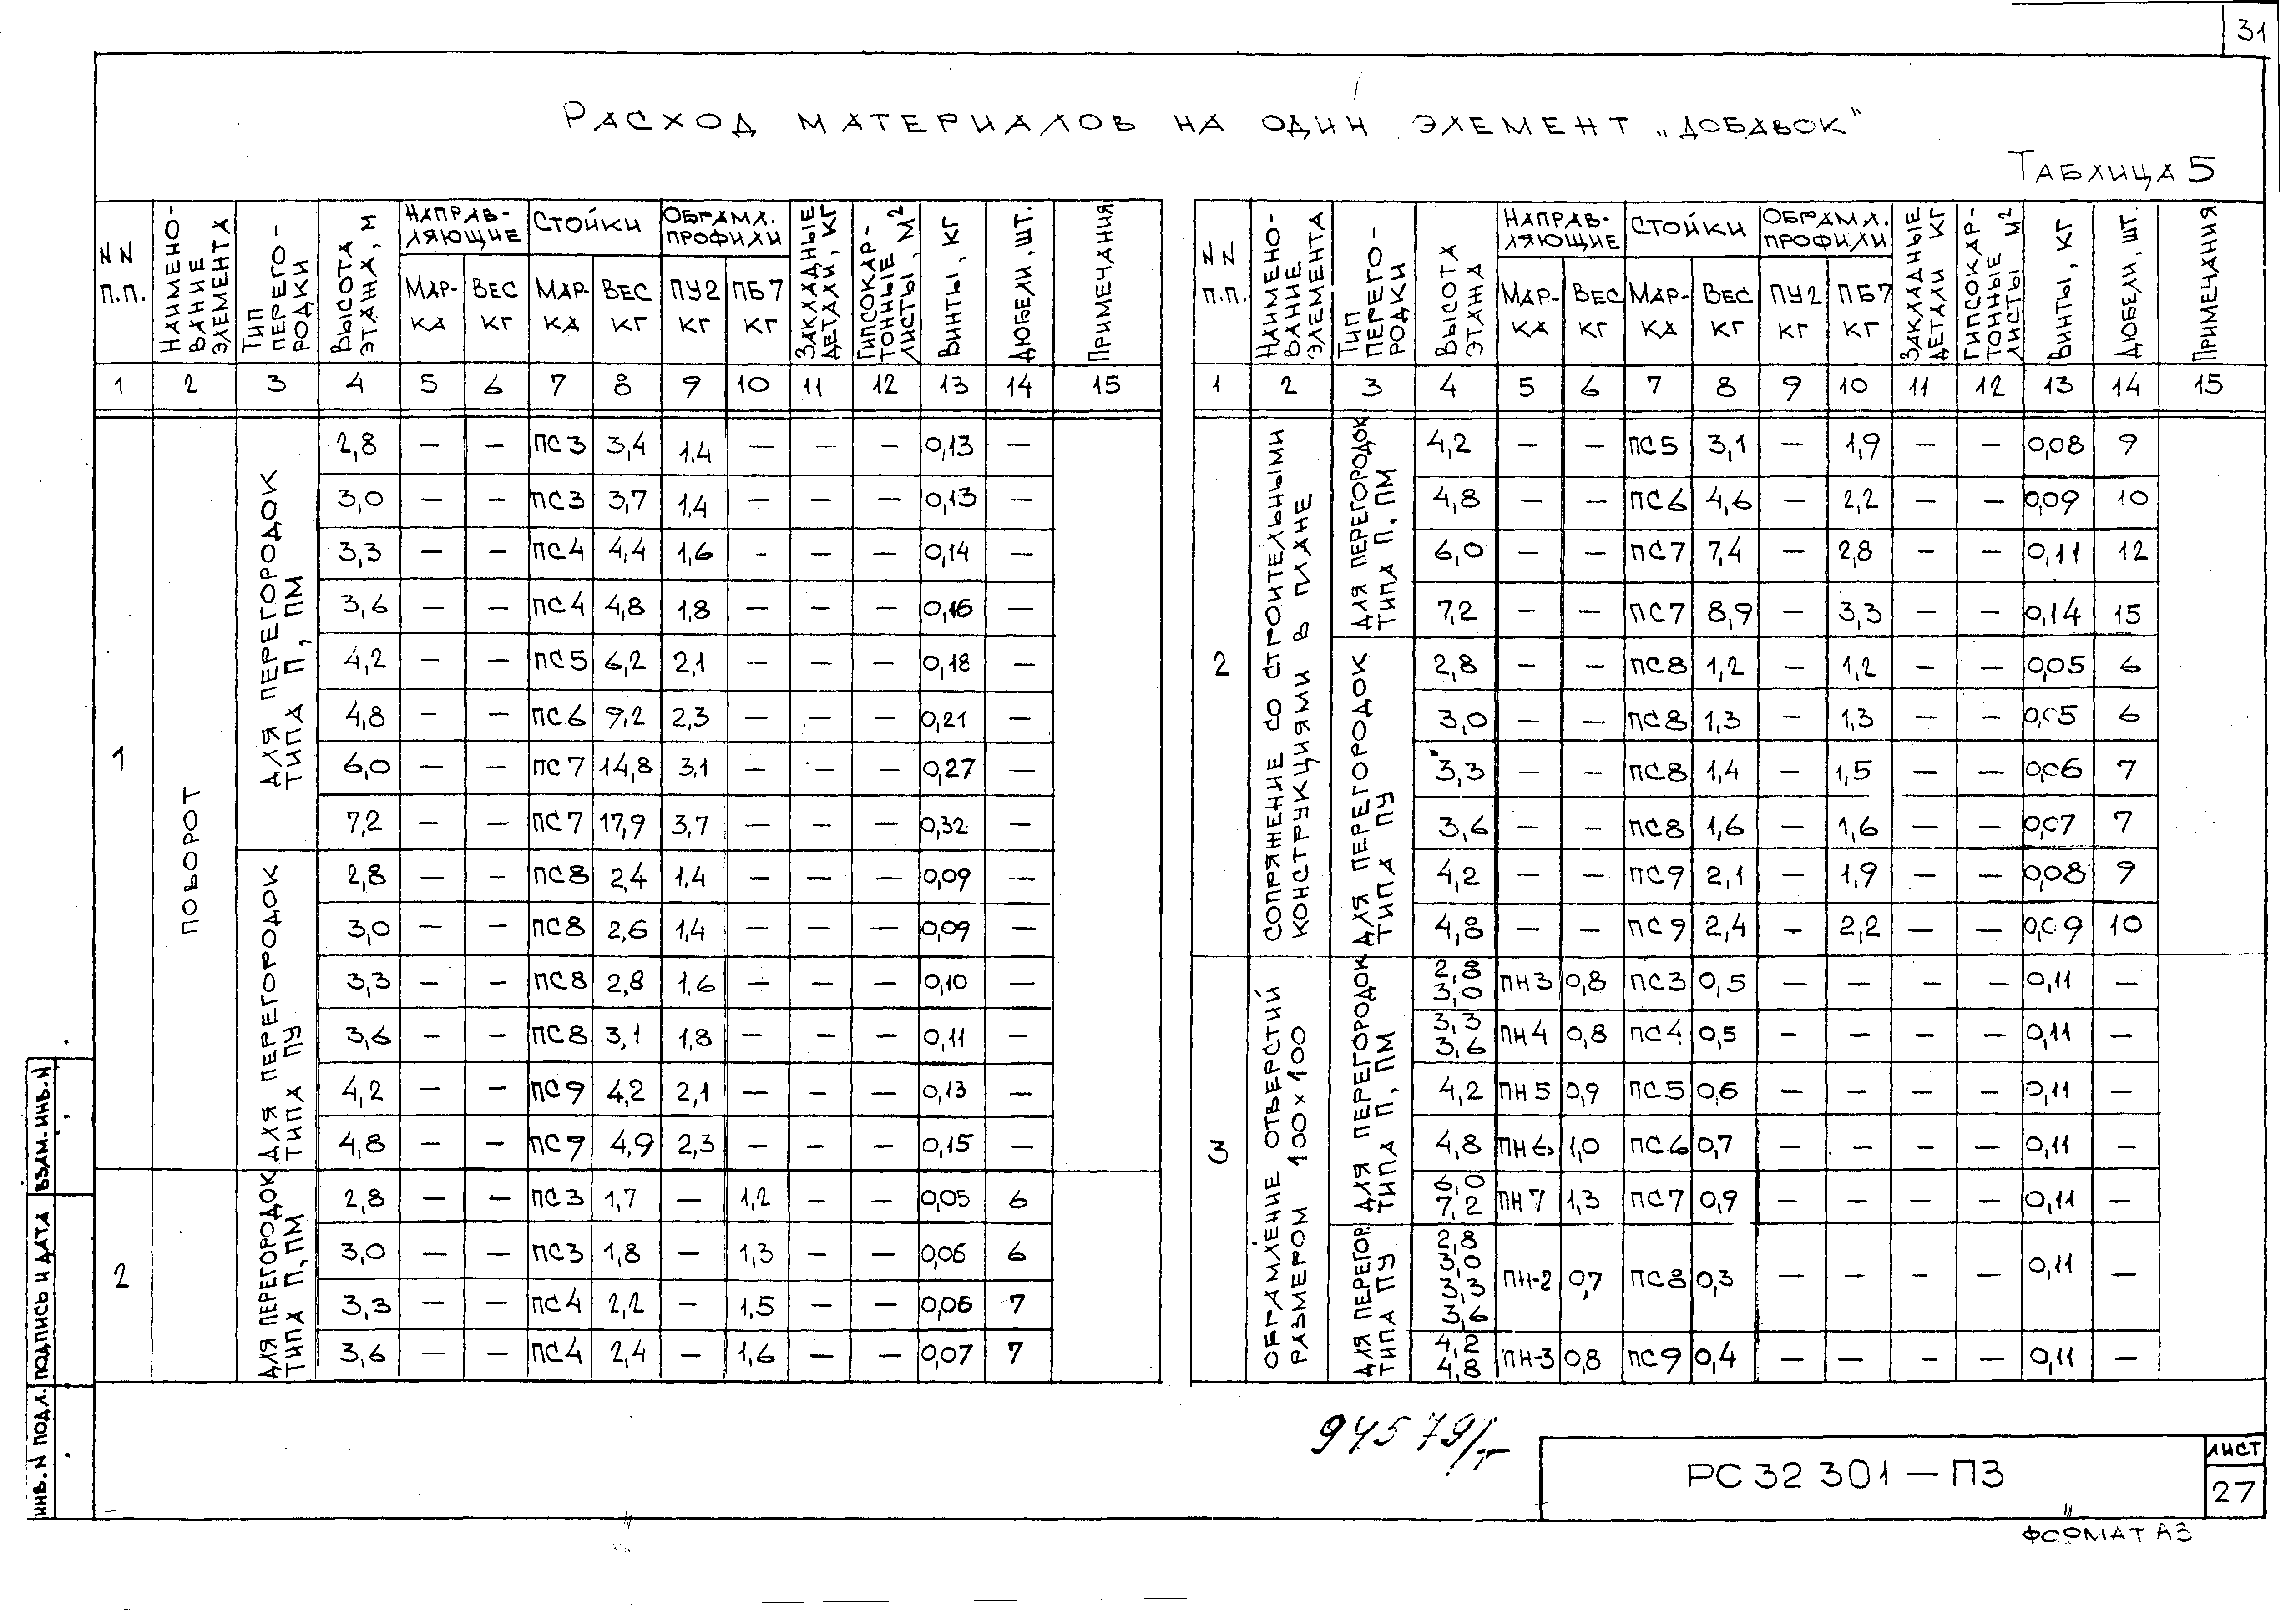 31
РАСХОД МАТЕРИАЛОВ НА ОДИН ЭЛЕМЕНТ „ДОБАВОК"
ТАБЛИЦА 5
NN П.П. | НАИМЕНО-ВАНИЕ ЭЛЕМЕНТА | ТИП ПЕРЕГО-РОДКИ | ВЫСОТА ЭТАЖА, М | НАПРАВ-ЛЯЮЩИЕ | СТОЙКИ | ОБРАМЛ. ПРОФИЛИ | ЗАКЛАДНЫЕ ДЕТАЛИ, КГ | ГИПСОКАР-ТОННЫЕ ЛИСТЫ, М² | ВИНТЫ, КГ | ДЮБЕЛИ, ШТ. | ПРИМЕЧАНИЯ
МАР-КА | ВЕС КГ | МАР-КА | ВЕС КГ | ПУ2 КГ | ПБ7 КГ
1 2 3 4 5 6 7 8 9 10 11 12 13 14 15
1
ПОВОРОТ
ДЛЯ ПЕРЕГОРОДОК ТИПА П, ПМ
2,8 — — ПС3 3,4 1.4 — — — 0,13 —
3,0 — — ПС3 3,7 1,4 — — — 0,13 —
3,3 — — ПС4 4,4 1,6 - — — 0,14 —
3,6 — — ПС4 4,8 1,8 — — — 0,16 —
4,2 — — ПС5 6,2 2,1 — — — 0,18 —
4,8 — — ПС6 9,2 2,3 — — — 0,21 —
6,0 — — ПС7 14,8 3,1 — — — 0,27 —
7,2 — — ПС7 17,9 3,7 — — — 0,32 —
ДЛЯ ПЕРЕГОРОДОК ТИПА ПУ
2,8 — — ПС8 2,4 1.4 — — — 0,09 —
3,0 — — ПС8 2,6 1,4 — — — 0,09 —
3,3 — — ПС8 2,8 1,6 — — — 0,10 —
3,6 — — ПС8 3,1 1,8 — — — 0,11 —
4,2 — — ПС9 4,2 2,1 — — — 0,13 —
4,8 — — ПС9 4,9 2,3 — — — 0,15 —
2
ДЛЯ ПЕРЕГОРОДОК ТИПА П, ПМ
2,8 — — ПС3 1,7 — 1,2 — — 0,05 6
3,0 — — ПС3 1,8 — 1,3 — — 0,06 6
3,3 — — ПС4 2,2 — 1,5 — — 0,06 7
3,6 — — ПС4 2,4 — 1,6 — — 0,07 7
NN П.П. | НАИМЕНО-ВАНИЕ ЭЛЕМЕНТА | ТИП ПЕРЕГО-РОДКИ | ВЫСОТА ЭТАЖА | НАПРАВ-ЛЯЮЩИЕ | СТОЙКИ | ОБРАМЛ. ПРОФИЛИ | ЗАКЛАДНЫЕ ДЕТАЛИ КГ | ГИПСОКАР-ТОННЫЕ ЛИСТЫ М² | ВИНТЫ, КГ | ДЮБЕЛИ, ШТ. | ПРИМЕЧАНИЯ
МАР-КА | ВЕС КГ | МАР-КА | ВЕС КГ | ПУ2 КГ | ПБ7 КГ
1 2 3 4 5 6 7 8 9 10 11 12 13 14 15
2
СОПРЯЖЕНИЕ СО СТРОИТЕЛЬНЫМИ КОНСТРУКЦИЯМИ В ПЛАНЕ
ДЛЯ ПЕРЕГОРОДОК ТИПА П, ПМ
4,2 — — ПС5 3,1 — 1,9 — — 0,08 9
4,8 — — ПС6 4,6 — 2,2 — — 0,09 10
6,0 — — ПС7 7,4 — 2,8 — — 0,11 12
7,2 — — ПС7 8,9 — 3,3 — — 0,14 15
ДЛЯ ПЕРЕГОРОДОК ТИПА ПУ
2,8 — — ПС8 1,2 — 1,2 — — 0,05 6
3,0 — — ПС8 1,3 — 1,3 — — 0,05 6
3,3 — — ПС8 1,4 — 1,5 — — 0,06 7
3,6 — — ПС8 1,6 — 1,6 — — 0,07 7
4,2 — — ПС9 2,1 — 1,9 — — 0,08 9
4,8 — — ПС9 2,4 - 2,2 — — 0,09 10
3
ОБРАМЛЕНИЕ ОТВЕРСТИЙ РАЗМЕРОМ 100×100
ДЛЯ ПЕРЕГОРОДОК ТИПА П, ПМ
2,8 3,0 ПН3 0,8 ПС3 0,5 — — — — 0,11 —
3,3 3,6 ПН4 0,8 ПС4 0,5 — — — — 0,11 —
4,2 ПН5 0,9 ПС5 0,6 — — — — 0,11 —
4,8 ПН6 1,0 ПС6 0,7 — — — — 0,11 —
6,0 7,2 ПН7 1,3 ПС7 0,9 — — — — 0,11 —
ДЛЯ ПЕРЕГОР. ТИПА ПУ
2,8 3,0 3,3 3,6 ПН-2 0,7 ПС8 0,3 — — — — 0,11 —
4,2 4,8 ПН-3 0,8 ПС9 0,4 — — — — 0,11 —
ИНВ. N ПОДЛ. ПОДПИСЬ И ДАТА ВЗАМ. ИНВ. N
94579/т
РС 32 301 — ПЗ
ЛИСТ
27
ФОРМАТ А3